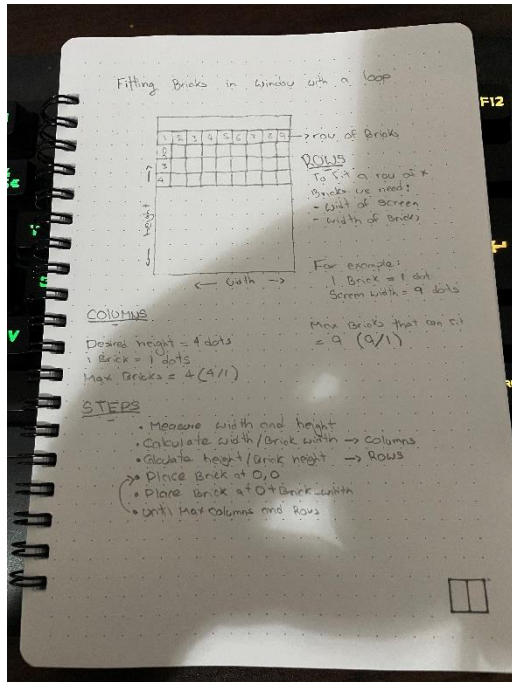 Fitting Bricks in window with a loop
1 2 3 4 5 6 7 8 9 → row of Bricks
2
3
4
height
← width →
ROWS
To fit a row of x
Bricks we need:
- widt of screen
- width of Bricks
For example:
1 Brick = 1 dot
Screen width = 9 dots
Max Bricks that can fit
= 9 (9/1)
COLUMNS
Desired height = 4 dots
1 Brick = 1 dots
Max Bricks = 4 (4/1)
STEPS
• Measure width and height
• Calculate width/Brick width → Columns
• Calculate height/Brick height → Rows
• Place Brick at 0,0
• Place Brick at 0 + Brick_width
• until Max Columns and Rows
F12